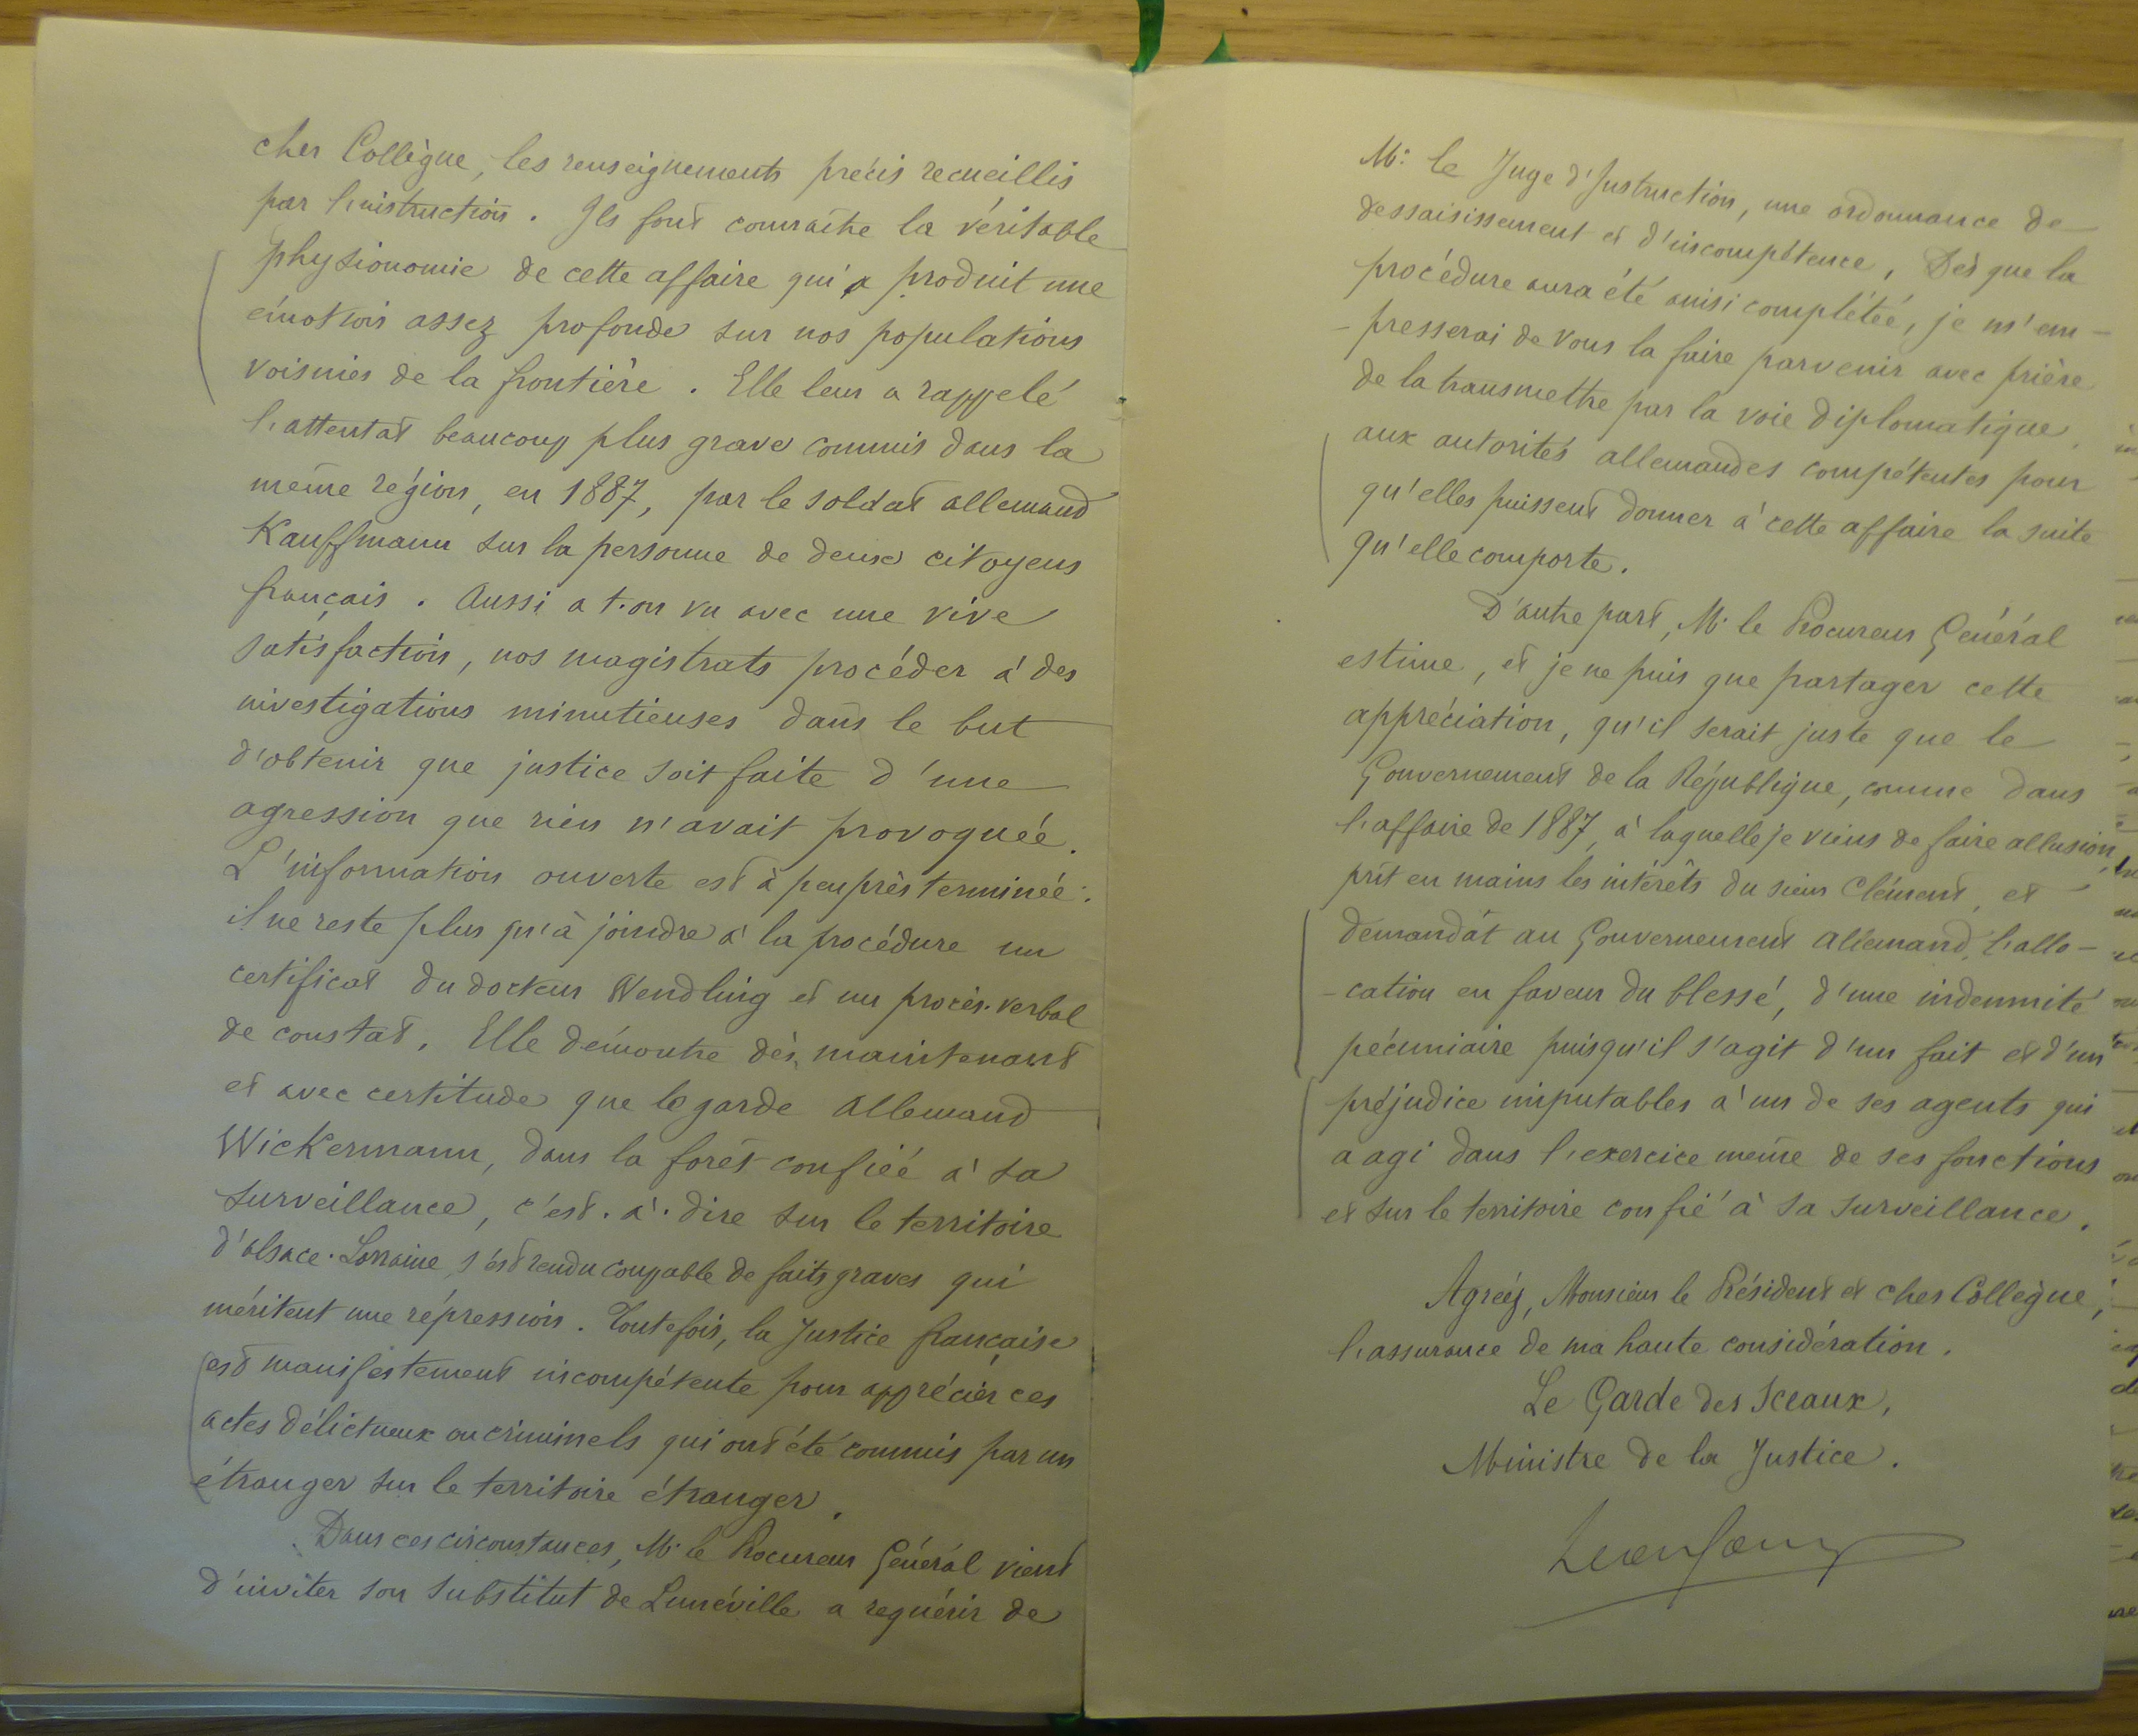 cher Collègue, les renseignements précis recueillis
par l'instruction. Ils font connaître la véritable
physionomie de cette affaire qui a produit une
émotion assez profonde sur nos populations
voisines de la frontière. Elle leur a rappelé
l'attentat beaucoup plus grave commis dans la
même région, en 1887, par le soldat allemand
Kauffmann sur la personne de deux citoyens
français. Aussi a t-on vu avec une vive
satisfaction, nos magistrats procéder à des
investigations minutieuses dans le but
d'obtenir que justice soit faite d'une
agression que rien n'avait provoquée.
L'information ouverte est à peu près terminée :
il ne reste plus qu'à joindre à la procédure un
certificat du docteur Wendling et un procès-verbal
de constat. Elle démontre dès maintenant
et avec certitude que le garde allemand
Wickermann, dans la forêt confiée à sa
surveillance, c'est-à-dire sur le territoire
d'Alsace-Lorraine, s'est rendu coupable de faits graves qui
méritent une répression. Toutefois, la Justice française
est manifestement incompétente pour apprécier ces
actes délictueux ou criminels qui ont été commis par un
étranger sur le territoire étranger.
Dans ces circonstances, M. le Procureur Général vient
d'inviter son substitut de Lunéville a requérir de
M. le Juge d'Instruction, une ordonnance de
dessaisissement et d'incompétence. Dès que la
procédure aura été ainsi complétée, je m'em-
-presserai de vous la faire parvenir avec prière
de la transmettre par la voie diplomatique,
aux autorités allemandes compétentes pour
qu'elles puissent donner à cette affaire la suite
qu'elle comporte.
D'autre part, M. le Procureur Général
estime, et je ne puis que partager cette
appréciation, qu'il serait juste que le
Gouvernement de la République, comme dans
l'affaire de 1887, à laquelle je viens de faire allusion,
prît en mains les intérêts du sieur Clément, et
demandât au Gouvernement allemand, l'allo-
-cation en faveur du blessé, d'une indemnité
pécuniaire puisqu'il s'agit d'un fait et d'un
préjudice imputables à un de ses agents qui
a agi dans l'exercice même de ses fonctions
et sur le territoire confié à sa surveillance.
Agréez, Monsieur le Président et cher Collègue,
l'assurance de ma haute considération.
Le Garde des Sceaux,
Ministre de la Justice.